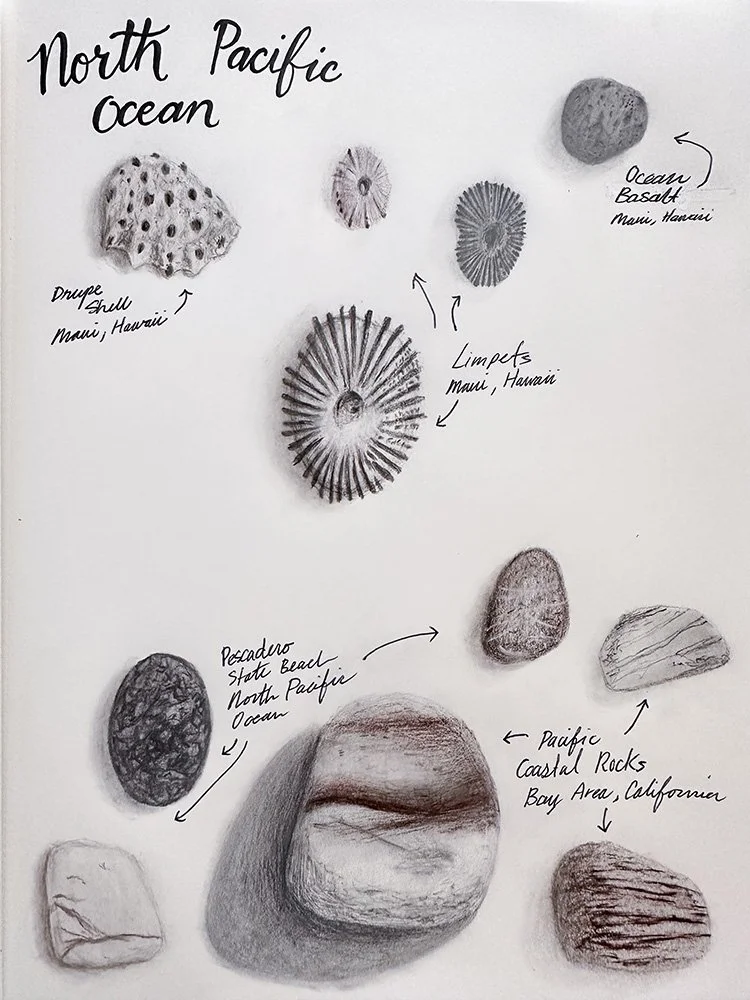 North Pacific
Ocean
Ocean
Basalt
Maui, Hawaii
Drupe
Shell
Maui, Hawaii
Limpets
Maui, Hawaii
Pescadero
State Beach
North Pacific
Ocean
Pacific
Coastal Rocks
Bay Area, California